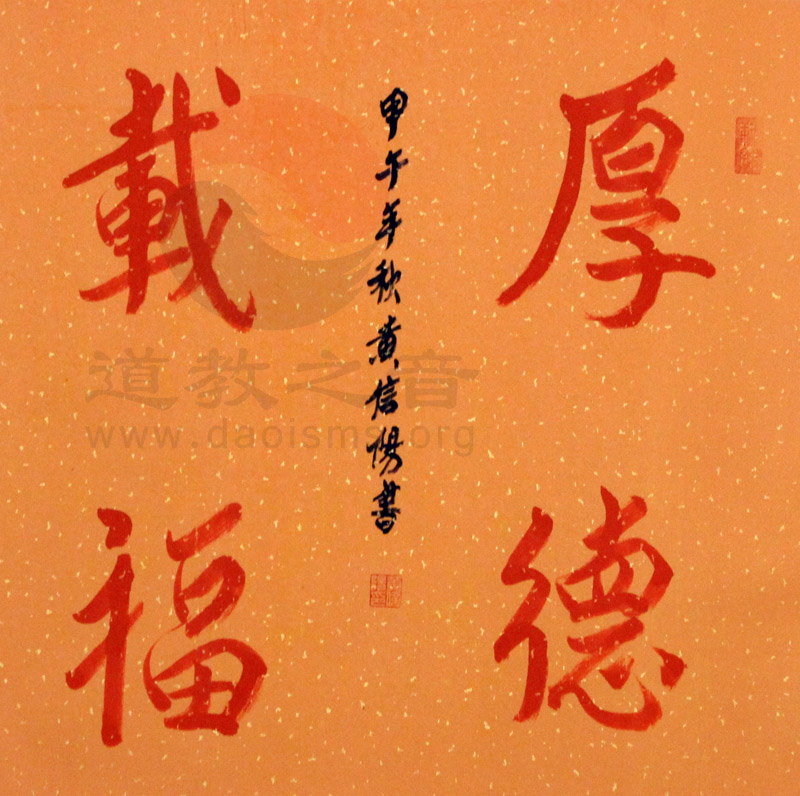 厚德
載福
甲午年秋黄信陽書
道教之音
www.daoisms.org